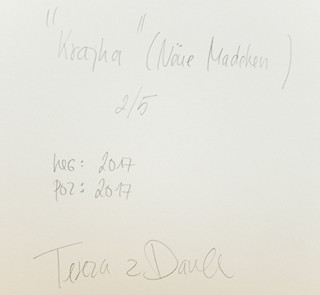 "Krajka" (Näve Madchen)
2/5
neg: 2017
poz: 2017
Tereza z Davle